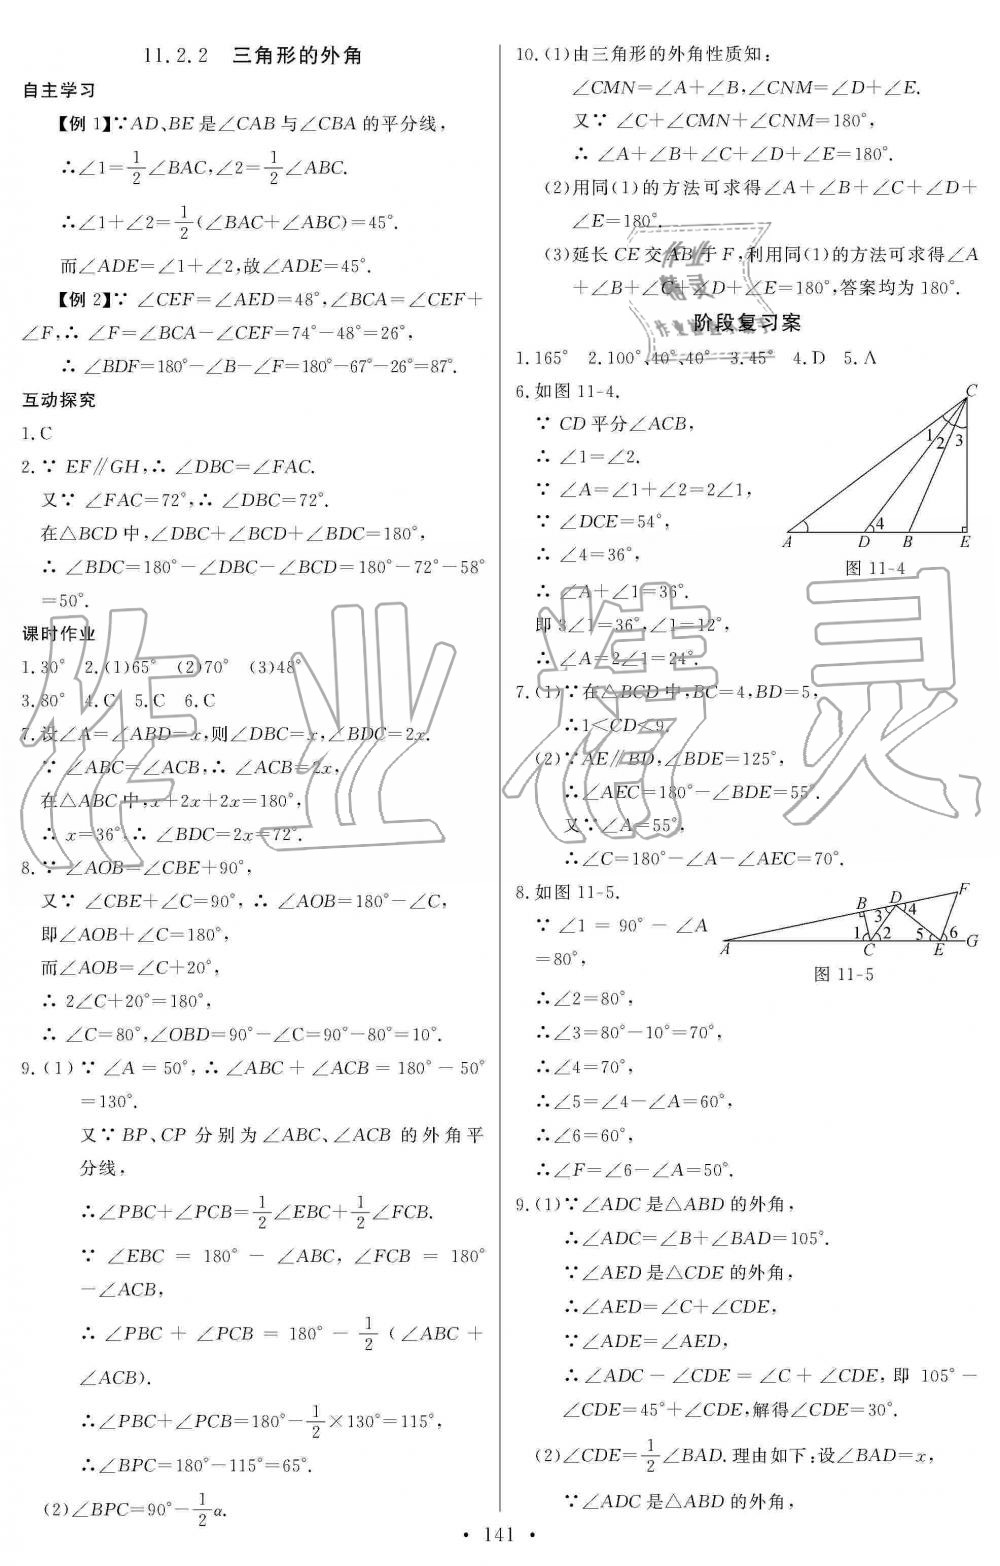 11.2.2 三角形的外角
自主学习
【例 1】∵AD、BE 是∠CAB 与∠CBA 的平分线，
∴∠1=1/2∠BAC,∠2=1/2∠ABC.
∴∠1+∠2=1/2(∠BAC+∠ABC)=45°.
而∠ADE=∠1+∠2,故∠ADE=45°.
【例 2】∵ ∠CEF=∠AED=48°,∠BCA=∠CEF+
∠F,∴ ∠F=∠BCA-∠CEF=74°-48°=26°,
∴ ∠BDF=180°-∠B-∠F=180°-67°-26°=87°.
互动探究
1.C
2.∵ EF∥GH,∴ ∠DBC=∠FAC.
又∵ ∠FAC=72°,∴ ∠DBC=72°.
在△BCD 中,∠DBC+∠BCD+∠BDC=180°,
∴ ∠BDC=180°-∠DBC-∠BCD=180°-72°-58°
=50°.
课时作业
1.30° 2.(1)65° (2)70° (3)48°
3.80° 4.C 5.C 6.C
7.设∠A=∠ABD=x,则∠DBC=x,∠BDC=2x.
∵ ∠ABC=∠ACB,∴ ∠ACB=2x,
在△ABC 中,x+2x+2x=180°,
∴ x=36°,∴ ∠BDC=2x=72°.
8.∵ ∠AOB=∠CBE+90°,
又∵ ∠CBE+∠C=90°,∴ ∠AOB=180°-∠C,
即∠AOB+∠C=180°,
而∠AOB=∠C+20°,
∴ 2∠C+20°=180°,
∴ ∠C=80°,∠OBD=90°-∠C=90°-80°=10°.
9.(1)∵ ∠A=50°,∴ ∠ABC+∠ACB=180°-50°
=130°.
又∵ BP、CP 分别为∠ABC、∠ACB 的外角平
分线，
∴∠PBC+∠PCB=1/2∠EBC+1/2∠FCB.
∵ ∠EBC = 180° - ∠ABC, ∠FCB = 180°
-∠ACB,
∴ ∠PBC + ∠PCB = 180° - 1/2 (∠ABC +
∠ACB).
∴∠PBC+∠PCB=180°-1/2×130°=115°,
∴∠BPC=180°-115°=65°.
(2)∠BPC=90°-1/2α.
10.(1)由三角形的外角性质知：
∠CMN=∠A+∠B,∠CNM=∠D+∠E.
又∵ ∠C+∠CMN+∠CNM=180°,
∴ ∠A+∠B+∠C+∠D+∠E=180°.
(2)用同(1)的方法可求得∠A+∠B+∠C+∠D+
∠E=180°.
(3)延长 CE 交 AB 于 F,利用同(1)的方法可求得∠A
+∠B+∠C+∠D+∠E=180°,答案均为 180°.
阶段复习案
1.165° 2.100°、40°、40° 3.45° 4.D 5.A
6.如图 11-4.
∵ CD 平分∠ACB,
∴ ∠1=∠2.
∵ ∠A=∠1+∠2=2∠1,
∵ ∠DCE=54°,
∴ ∠4=36°,
∴ ∠A+∠1=36°.
即 3∠1=36°,∠1=12°,
∴ ∠A=2∠1=24°.
C
1 2 3
4
A D B E
图 11-4
7.(1)∵在△BCD 中,BC=4,BD=5,
∴1<CD<9.
(2)∵AE∥BD,∠BDE=125°,
∴∠AEC=180°-∠BDE=55°.
又∵∠A=55°,
∴∠C=180°-∠A-∠AEC=70°.
8.如图 11-5.
∵ ∠1 = 90° - ∠A
=80°,
∴∠2=80°,
∴∠3=80°-10°=70°,
∴∠4=70°,
∴∠5=∠4-∠A=60°,
∴∠6=60°,
∴∠F=∠6-∠A=50°.
B D F
3 4
1 2 5 6
A C E G
图 11-5
9.(1)∵∠ADC 是△ABD 的外角，
∴∠ADC=∠B+∠BAD=105°.
∵∠AED 是△CDE 的外角，
∴∠AED=∠C+∠CDE,
∵∠ADE=∠AED,
∴∠ADC-∠CDE=∠C+∠CDE,即 105°-
∠CDE=45°+∠CDE,解得∠CDE=30°.
(2)∠CDE=1/2∠BAD.理由如下：设∠BAD=x,
∵∠ADC 是△ABD 的外角，
• 141 •
作业精灵
作业
精灵